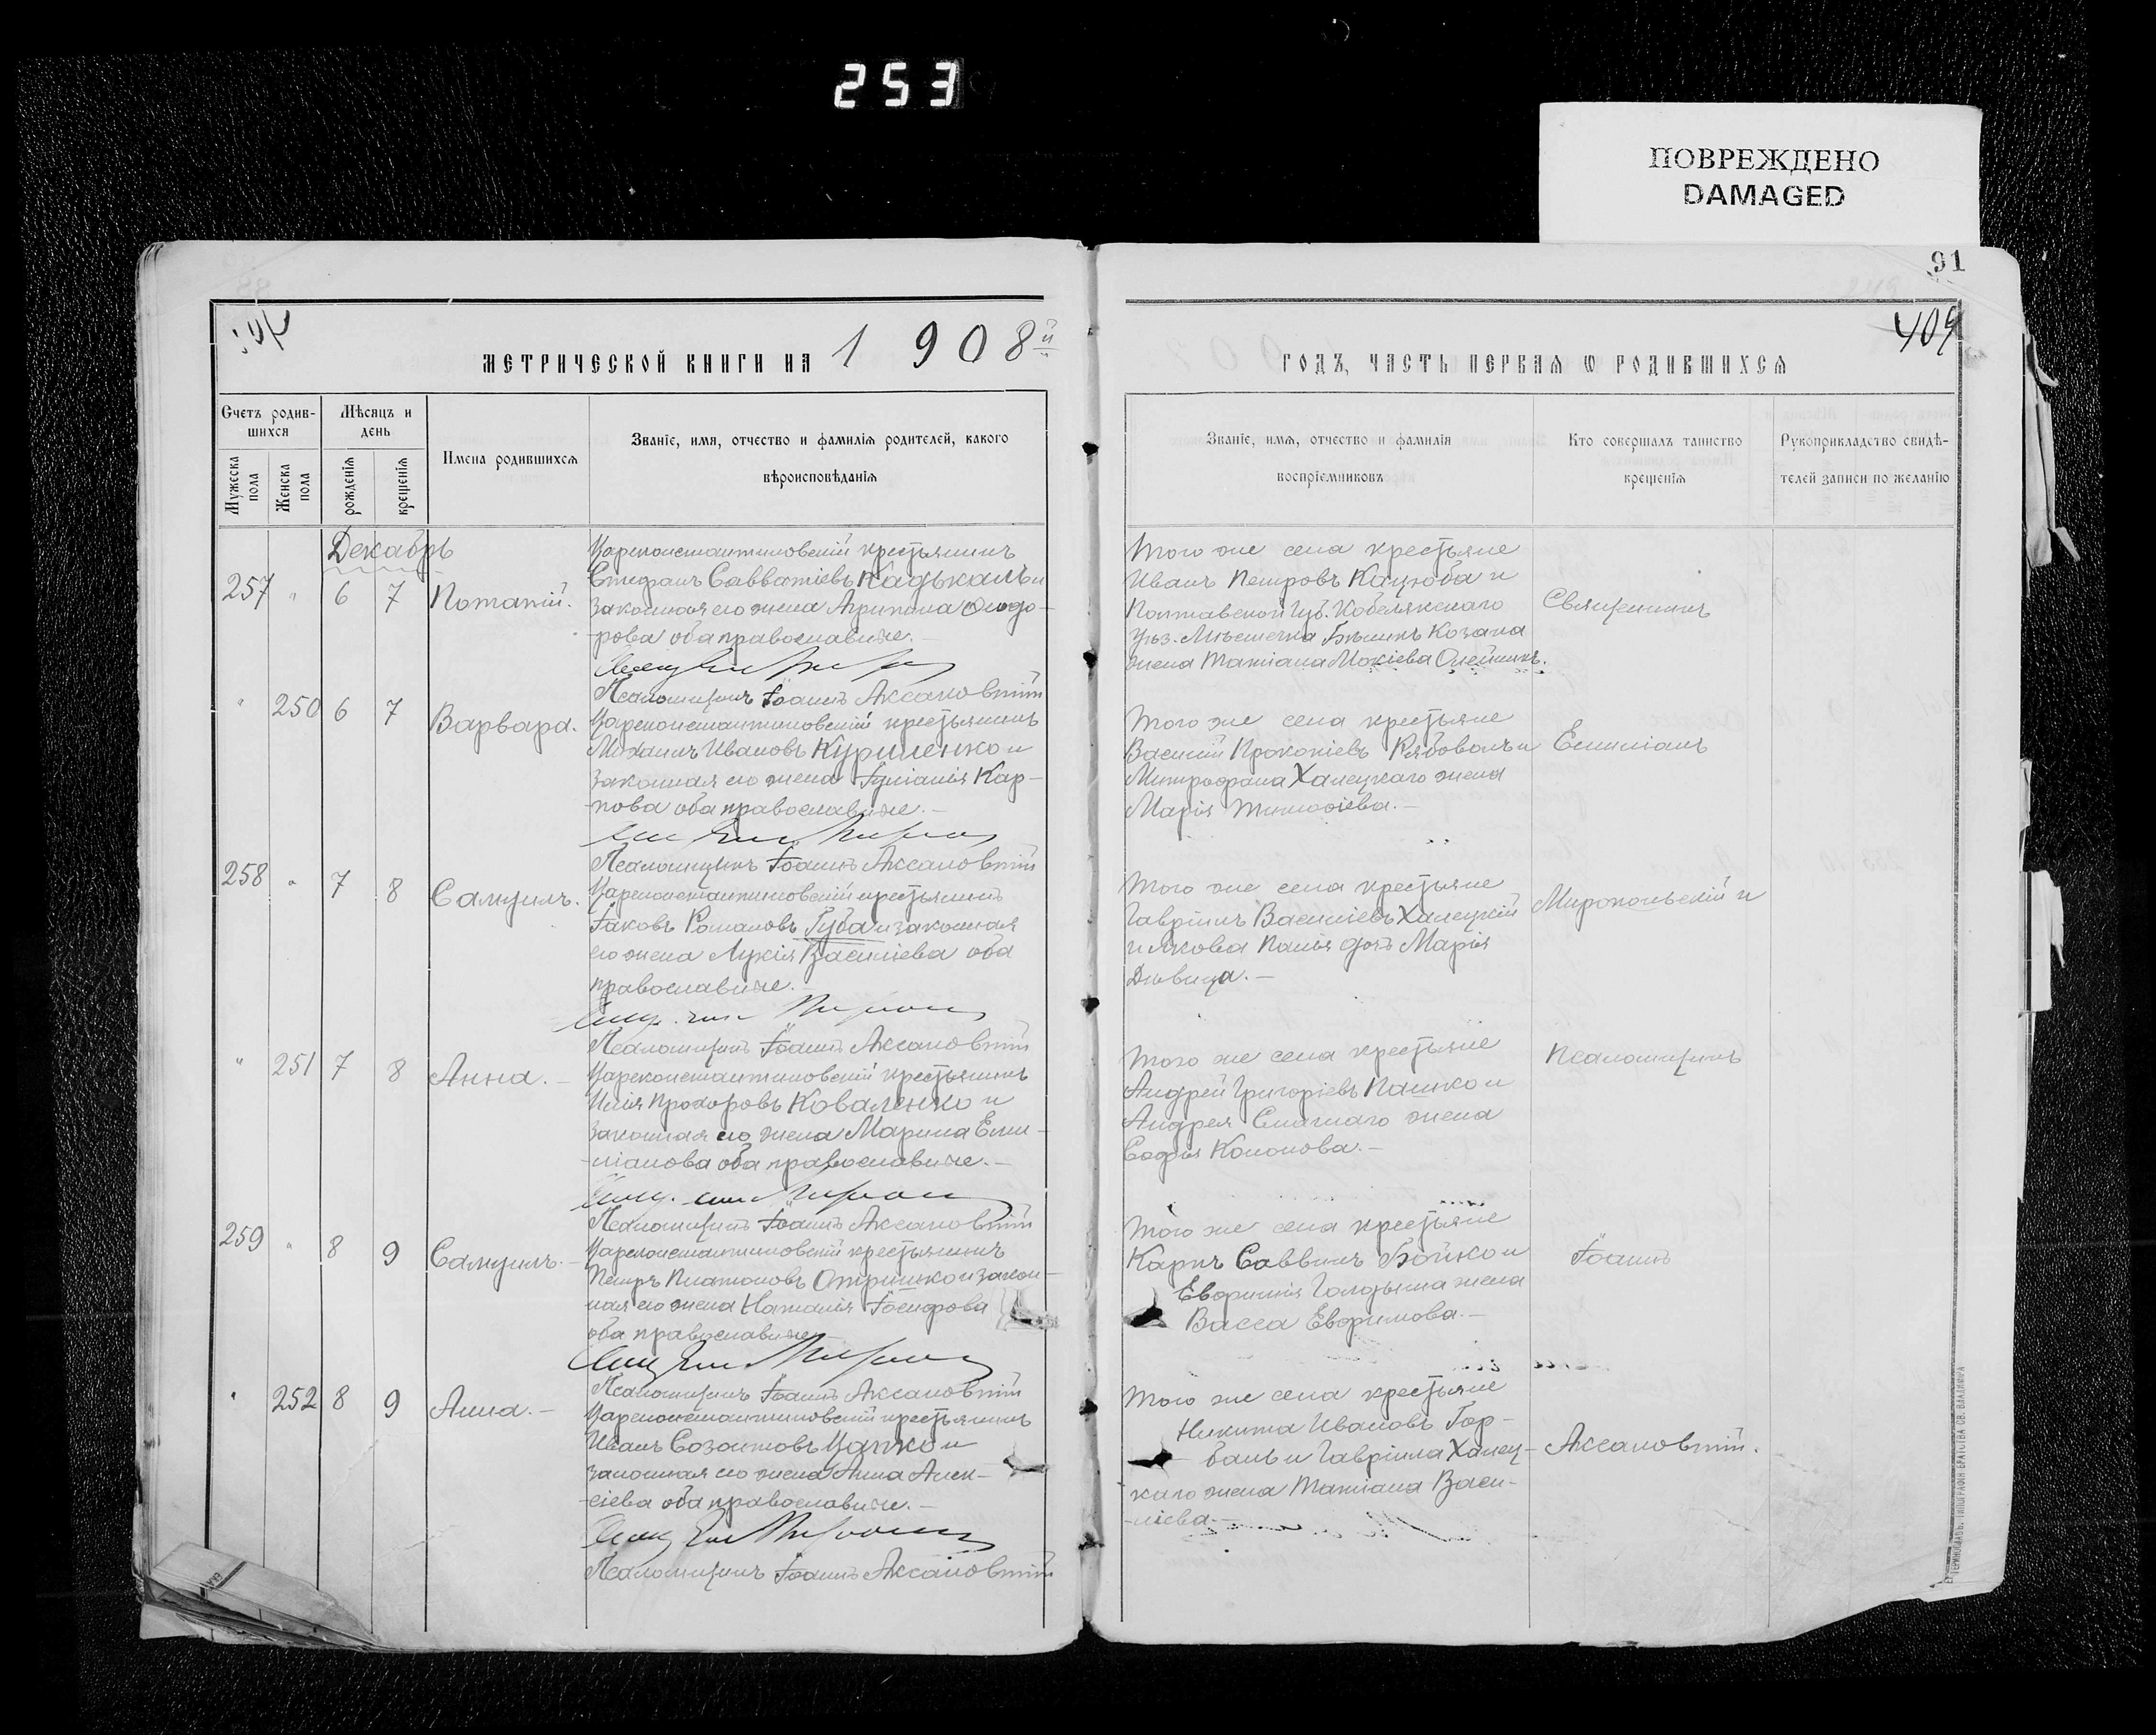 253
ПОВРЕЖДЕНО
DAMAGED
91
409
МЕТРИЧЕСКОЙ КНИГИ НА 1908й
ГОДЪ, ЧАСТЬ ПЕРВАЯ Ѡ РОДИВШИХСЯ
Счетъ родив-
шихся
Мужеска
пола
Женска
пола
Мѣсяцъ и
день
рожденія
крещенія
Имена родившихся
Званіе, имя, отчество и фамилія родителей, какого
вѣроисповѣданія
Званіе, имя, отчество и фамилія
воспріемниковъ
Кто совершалъ таинство
крещенія
Рукоприкладство свидѣ-
телей записи по желанію
Декабрь
257 " 6 7 Потапій.
Цареконстантиновскій крестьянинъ
Стефанъ Савватіевъ Кадькалъ и
законная его жена Агрипина Ѳеодо-
-рова оба православные.-
Псаломщикъ Іоаннъ Аксановскій
Того же села крестьяне
Иванъ Петровъ Кацюба и
Полтавской губ. Кобелякскаго
уѣз. Мѣстечка Бѣликъ Козака
жена Татіана Мокіева Олейникъ.
Священникъ
" 250 6 7 Варвара.
Цареконстантиновскій крестьянинъ
Михаилъ Ивановъ Куриленко и
законная его жена Іуліанія Кар-
-пова оба православные.-
Псаломщикъ Іоаннъ Аксановскій
Того же села крестьяне
Василій Прокопіевъ Рябовалъ и
Митрофана Халецкаго жена
Марія Тимоѳіева.-
Емиліанъ
258 " 7 8 Самуилъ.
Цареконстантиновскій крестьянинъ
Іаковъ Романовъ Губа и законная
его жена Лукія Василіева оба
православные.-
Псаломщикъ Іоаннъ Аксановскій
Того же села крестьяне
Гавріилъ Василіевъ Халецкій
и Якова Палія дочь Марія
Дѣвица.-
Миропольскій и
" 251 7 8 Анна.-
Цареконстантиновскій крестьянинъ
Илія Прохоровъ Коваленко и
законная его жена Марина Еми-
-ліанова оба православные.-
Псаломщикъ Іоаннъ Аксановскій
Того же села крестьяне
Андрей Григоріевъ Пашко и
Андрея жена
Софія Кононова.-
Псаломщикъ
259 " 8 9 Самуилъ.-
Цареконстантиновскій крестьянинъ
Петръ Платоновъ и закон-
ная его жена Наталія Іосифова
оба православные.-
Псаломщикъ Іоаннъ Аксановскій
Того же села крестьяне
Карпъ Саввинъ Бойко и
Евфимія жена
Васса Евфимова.-
Іоаннъ
" 252 8 9 Анна.-
Цареконстантиновскій крестьянинъ
Иванъ Созонтовъ Цапко и
законная его жена Анна Алек-
-сіева оба православные.-
Псаломщикъ Іоаннъ Аксановскій
Того же села крестьяне
Никита Ивановъ Гор-
банъ и Гавріила Халец-
каго жена Татіана Васи-
-ліева.-
Аксановскій.
ЕКАТЕРИНОСЛАВЪ. ТИПОГРАФІЯ БРАТСТВА СВ. ВЛАДИМІРА